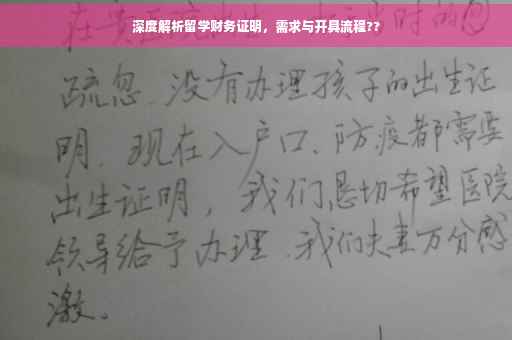 深度解析留学财务证明，需求与开具流程??
时的
疏忽、没有办理孩子的出生证
明、现在入户口、防疫都需要
出生证明，我们恳切希望医院
领导给予办理、我们夫妻万分感
激。